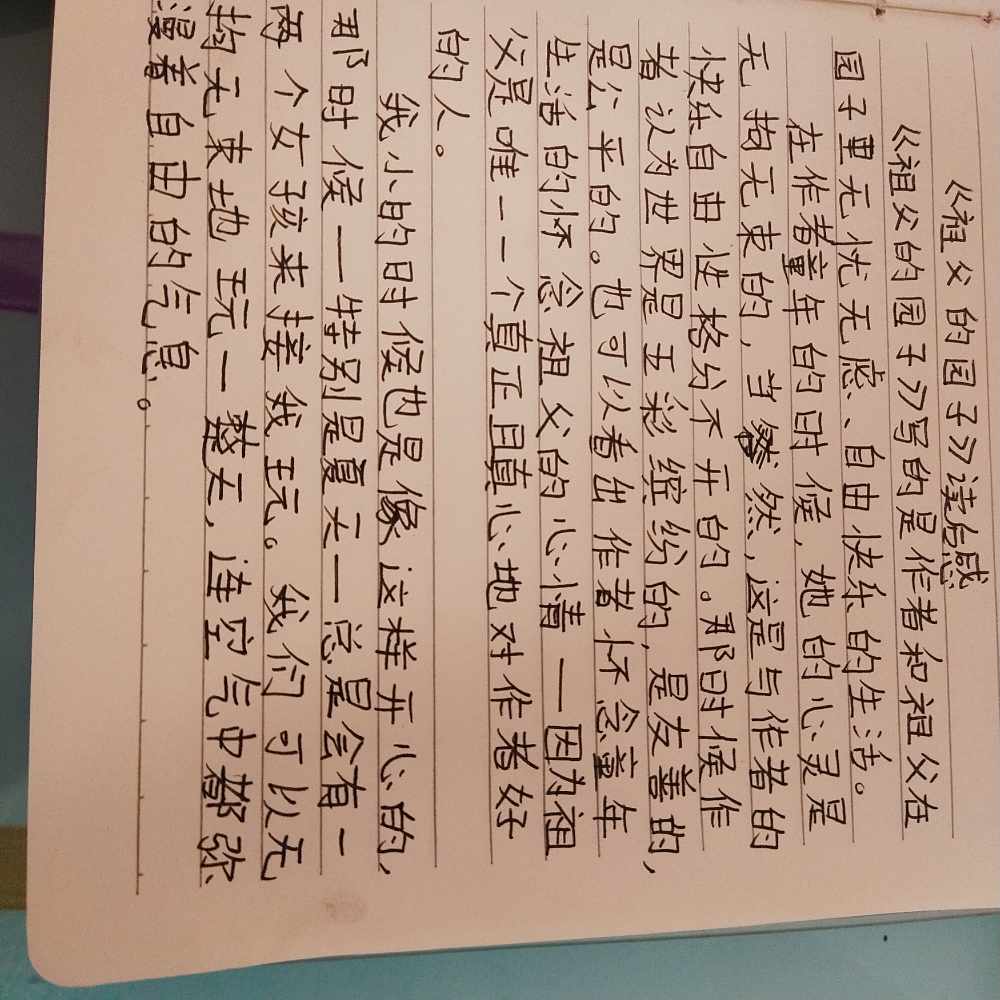 《祖父的园子》读后感
《祖父的园子》写的是作者和祖父在
园子里无忧无虑、自由快乐的生活。
在作者童年的时候，她的心灵是
无拘无束的，当然，这是与作者的
快乐自由性格分不开的。那时候作
者认为世界是五彩缤纷的，是友善的，
是公平的。也可以看出作者怀念童年
生活的怀念祖父的心情——因为祖
父是唯一一个真正且真心地对作者好
的人。
我小的时候也是像这样开心的，
那时候——特别是夏天——总是会有一
两个女孩来接我玩。我们可以无
拘无束地玩一整天，连空气中都弥
漫着自由的气息。